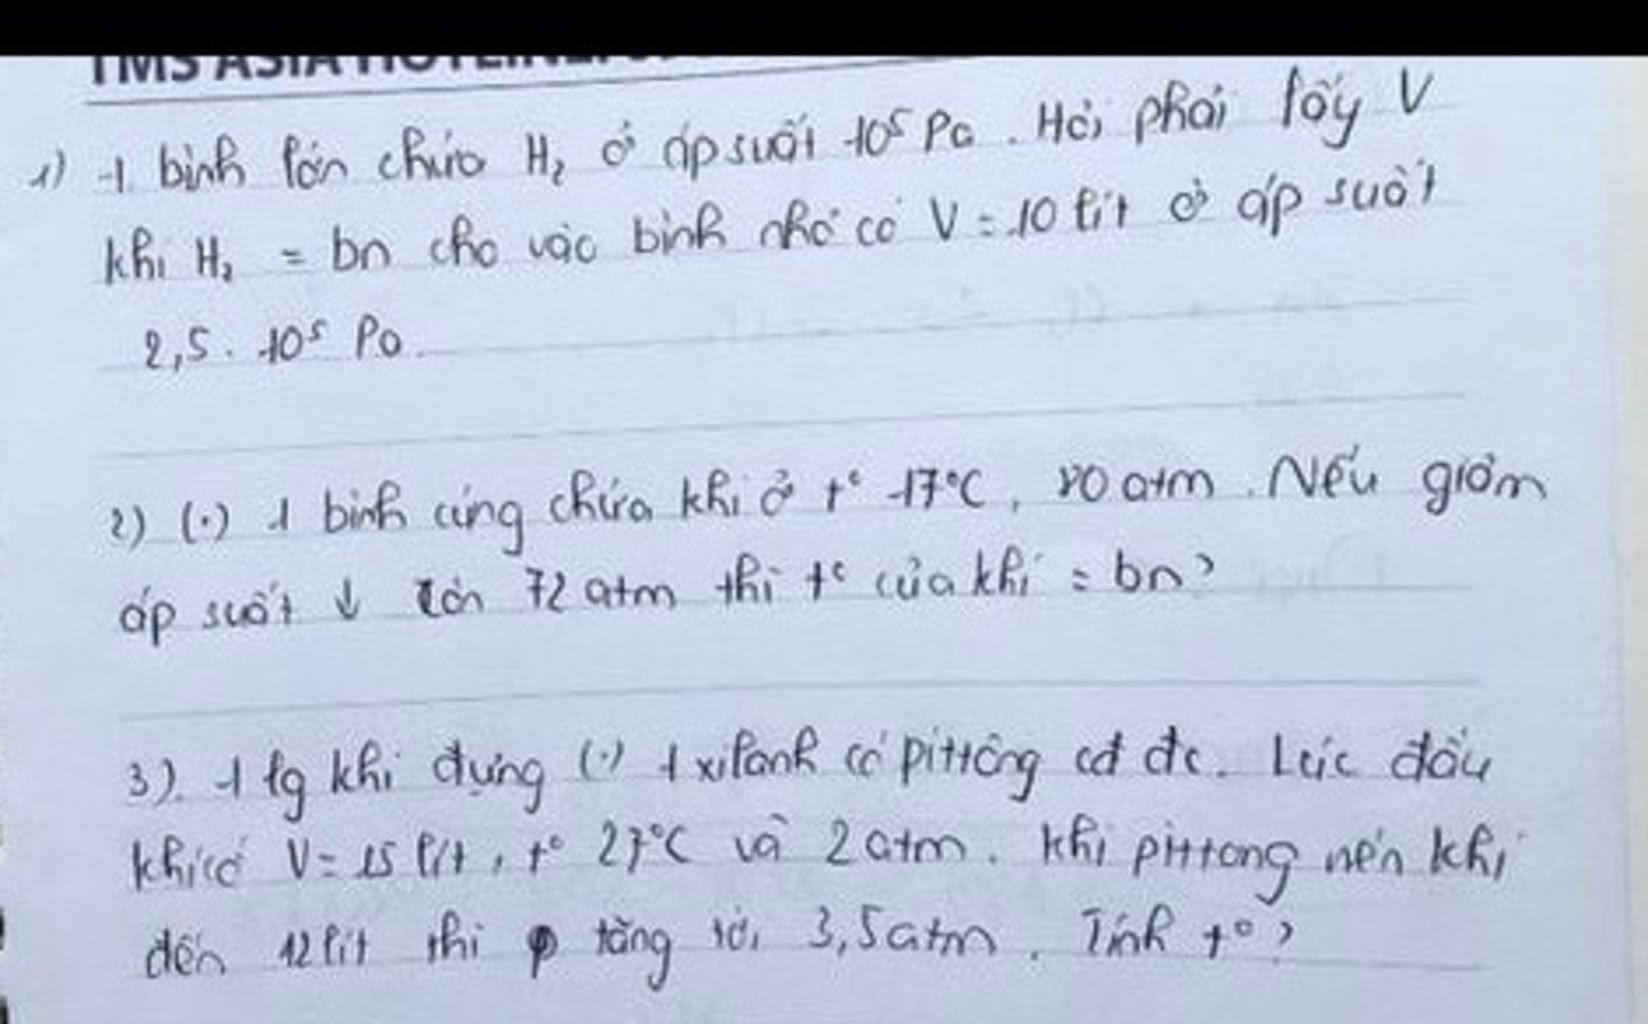 TMS ASIA HOTLINE
1) 1 bình lớn chứa H₂ ở áp suất 10⁵ Pa. Hỏi phải lấy V
khí H₂ = bn cho vào bình nhỏ có V = 10 lít ở áp suất
2,5. 10⁵ Pa.
2) (.) 1 bình cứng chứa khí ở t° 17°C, 80 atm. Nếu giảm
áp suất ↓ còn 72 atm thì t° của khí = bn?
3). 1 lg khí đựng (.) 1 xilanh có pittông cđ đc. Lúc đầu
khí có V = 15 lít, t° 27°C và 2 atm. Khi pittong nén khí
đến 12 lít thì p tăng tới 3,5 atm. Tính t°?